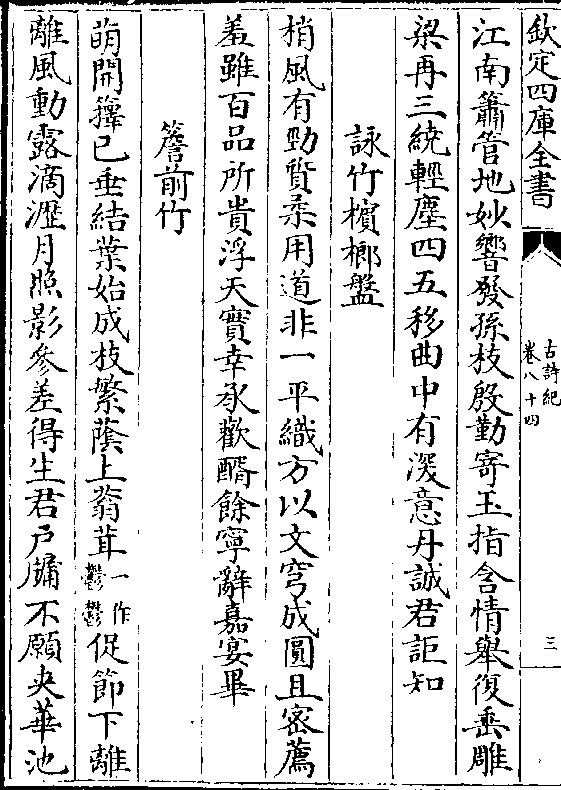 欽定四庫全書
古詩紀
卷八十四
三
江南簫管地妙響發孫枝殷勤寄玉指含情舉復垂雕
梁再三繞輕塵四五移曲中有深意丹誠君詎知
詠竹檳榔盤
梢風有勁質柔用道非一平織方以文穹成圓且密薦
羞雖百品所貴浮天實幸承歡醑餘寧辭嘉宴畢
簷前竹
萌開籜已垂結葉始成枝繁䕃上蓊茸一作鬱鬱促節下離
離風動露滴瀝月照影參差得生君戶牖不願夾華池